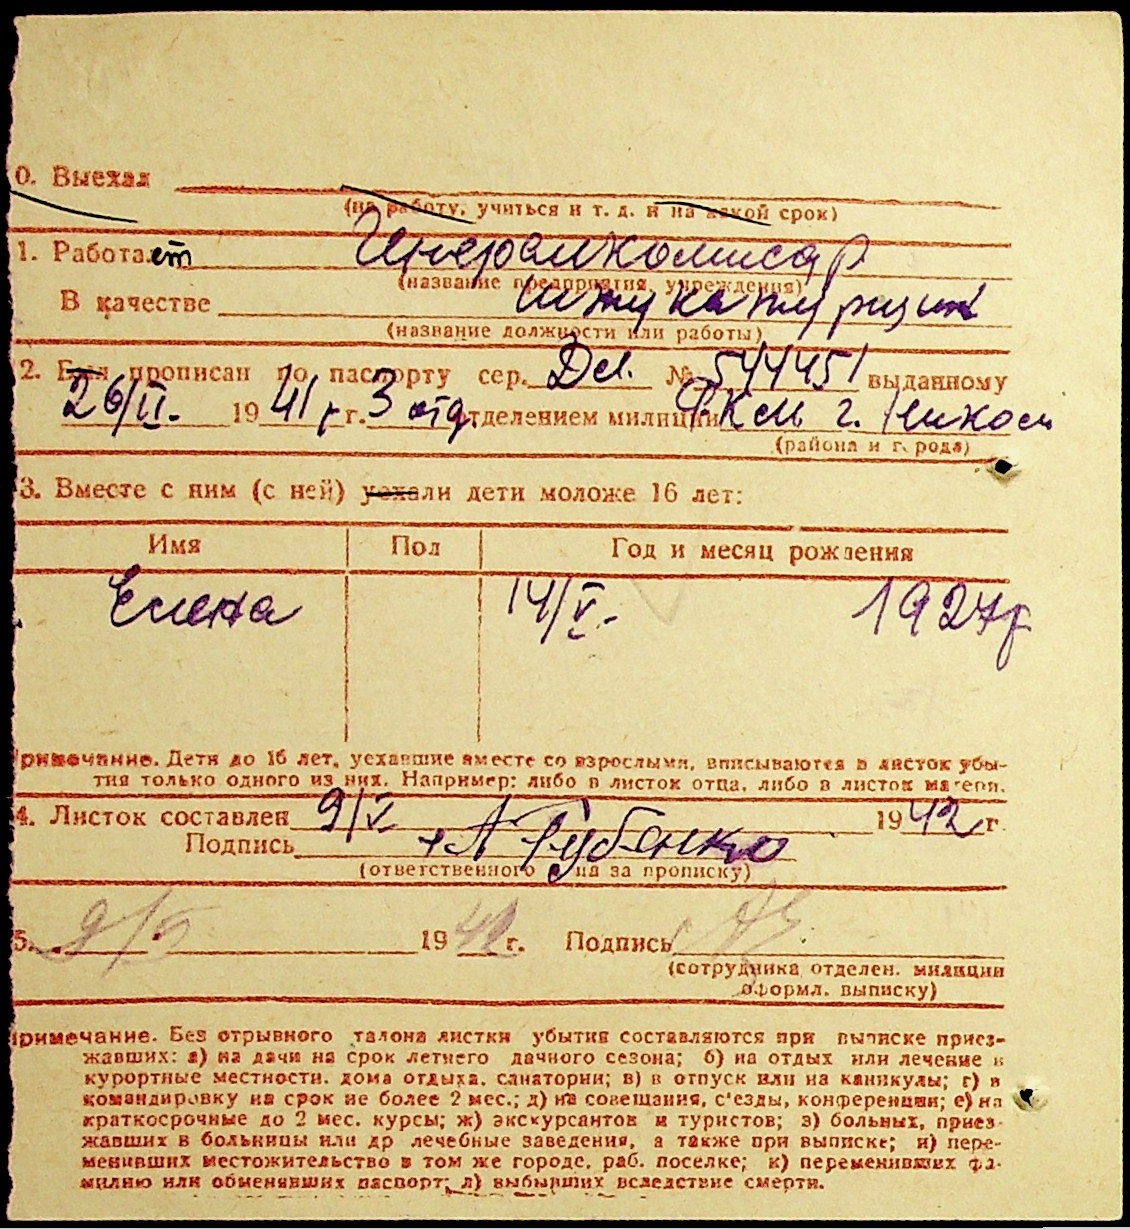 0. Выехал
(на работу, учиться и т. д. и на какой срок)
1. Работает Генералкомисар
(название предприятия, учреждения)
В качестве штукатурщик
(название должности или работы)
2. Был прописан по паспорту сер. № 544451 выданному
26/II. 1941 г. 3 отд отделением милиции г. Никол
(района и города)
3. Вместе с ним (с ней) уехали дети моложе 16 лет:
Имя Пол Год и месяц рождения
Елена 14/V. 1927г
Примечание. Дети до 16 лет, уехавшие вместе со взрослыми, вписываются в листок убы-
тия только одного из них. Например: либо в листок отца, либо в листок матери.
4. Листок составлен 9/V 1942 г.
Подпись Губенко
(ответственного за прописку)
5. 9/5 1942 г. Подпись
(сотрудника отделен. милиции
оформл. выписку)
римечание. Без отрывного талона листки убытия составляются при выписке приез-
жавших: а) на дачи на срок летнего дачного сезона; б) на отдых или лечение в
курортные местности, дома отдыха, санатории; в) в отпуск или на каникулы; г) в
командировку на срок не более 2 мес.; д) на совещания, с'езды, конференции; е) на
краткосрочные до 2 мес. курсы; ж) экскурсантов и туристов; з) больных, приез-
жавших в больницы или др лечебные заведения, а также при выписке; и) пере-
менивших местожительство в том же городе, раб. поселке; к) переменивших фа-
милию или обменявших паспорт; л) выбывших вследствие смерти.